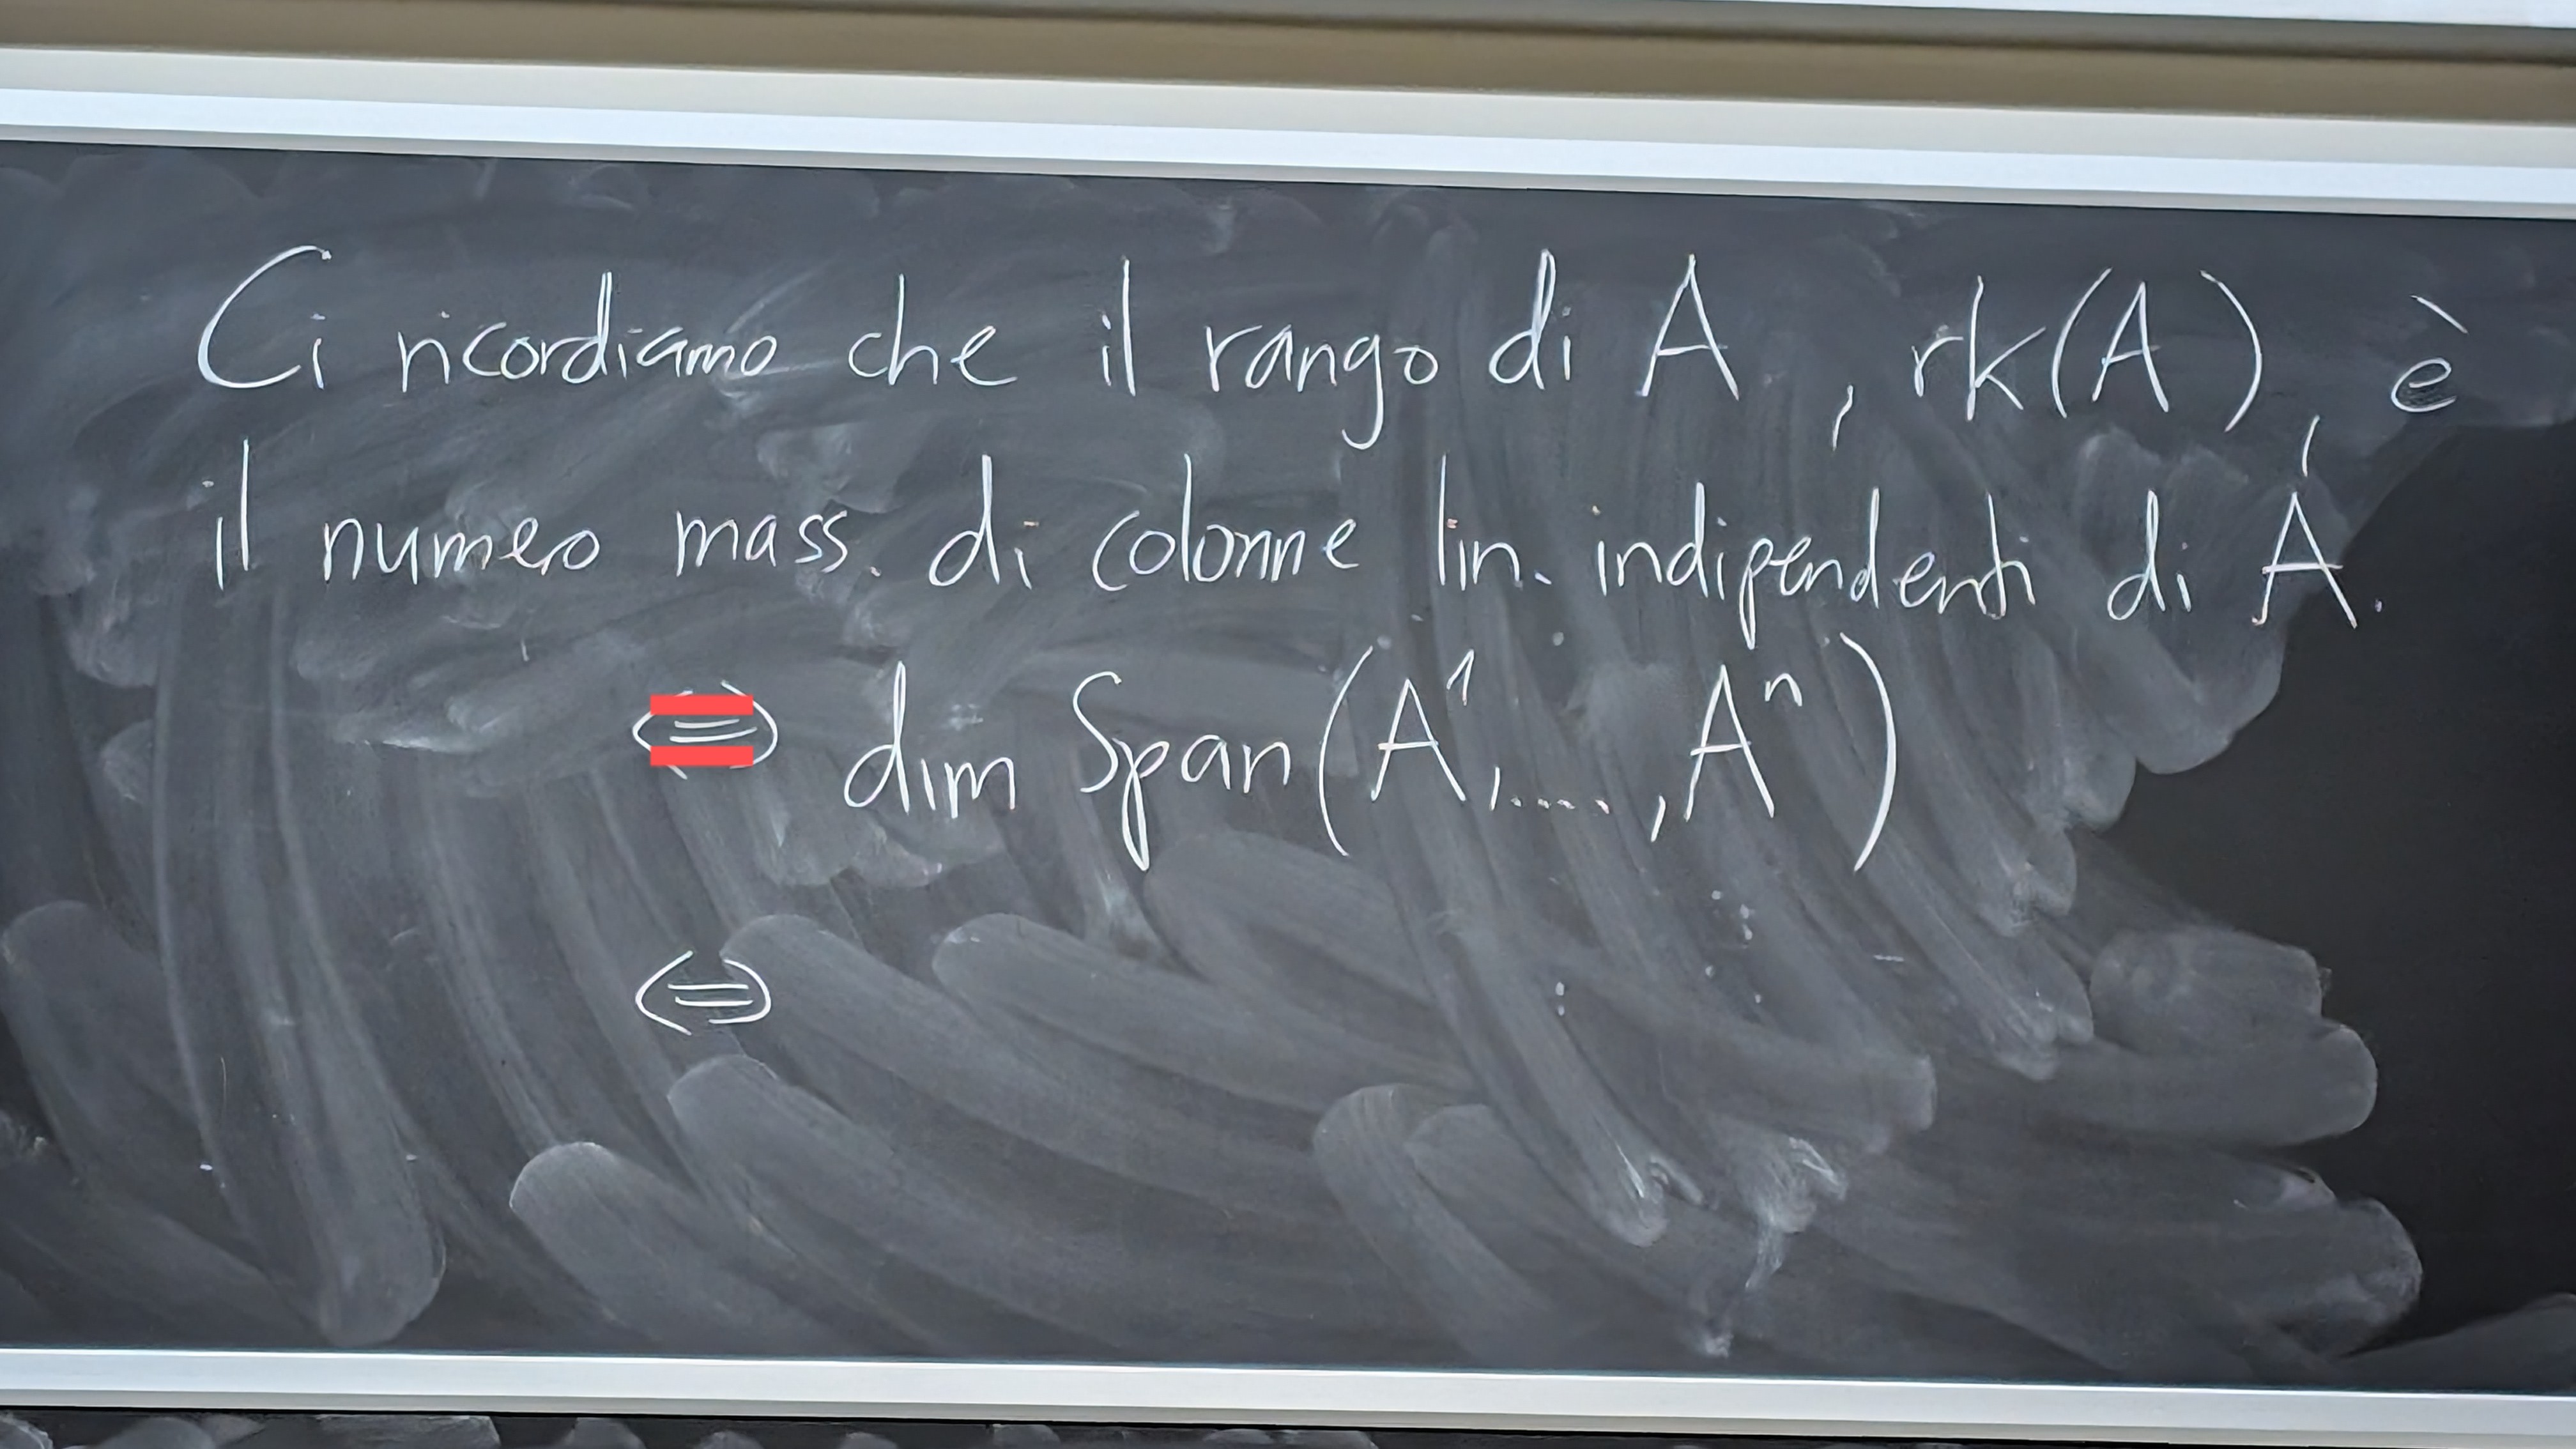 Ci ricordiamo che il rango di A, rk(A), è
il numero mass. di colonne lin. indipendenti di A.
(=) dim Span(A¹,....,Aⁿ)
(=)